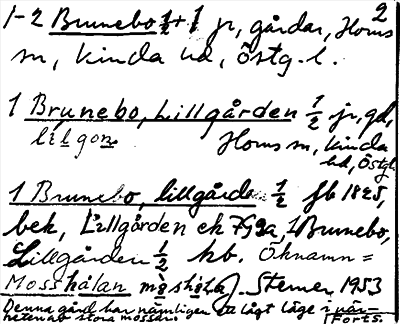 2
1-2 Brunebo ½+1 jr, gårdar, Horns
sn, Kinda hd, Östg.l.
1 Brunebo, Lillgården ½ jr, gd,
lilgon Horns sn, Kinda
hd, Östgl.
1 Brunebo, lillgården ½ fb 1825,
bek, Lillgården ek 7992, 1 Brunebo,
Lillgården ½ kb. Öknamn =
Mosshålan måshöla). Sterner 1953
Denna gård har nämligen ett lågt läge i när-
heten av stora mossar. Forts.